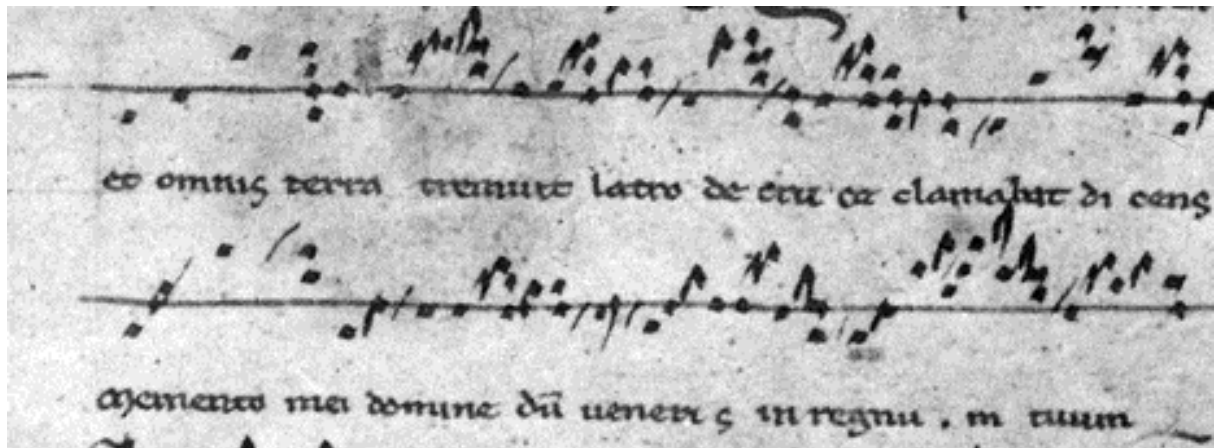 et omnis terra tremuit latro de cru ce clamabat di cens
Memento mei domine dū veneri s in regnu . m tuum